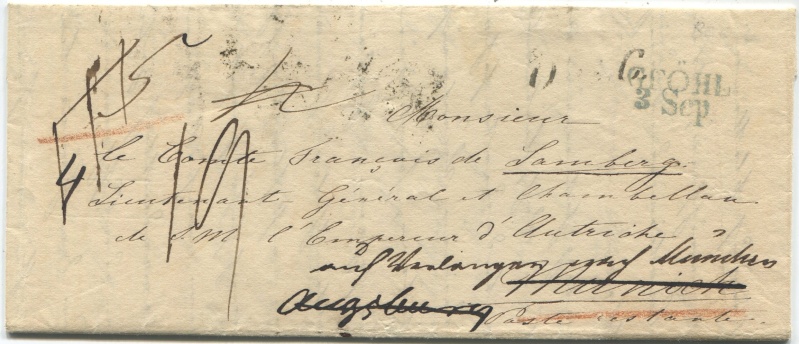 GFÖHL
3 Sep
Monsieur
le Comte François de Lamberg.
Lieutenant Général et Chambellan
de S. M. l'Empereur d'Autriche
auf Verlangen nach München
Munich
Augsburg
Poste restante.
4
19